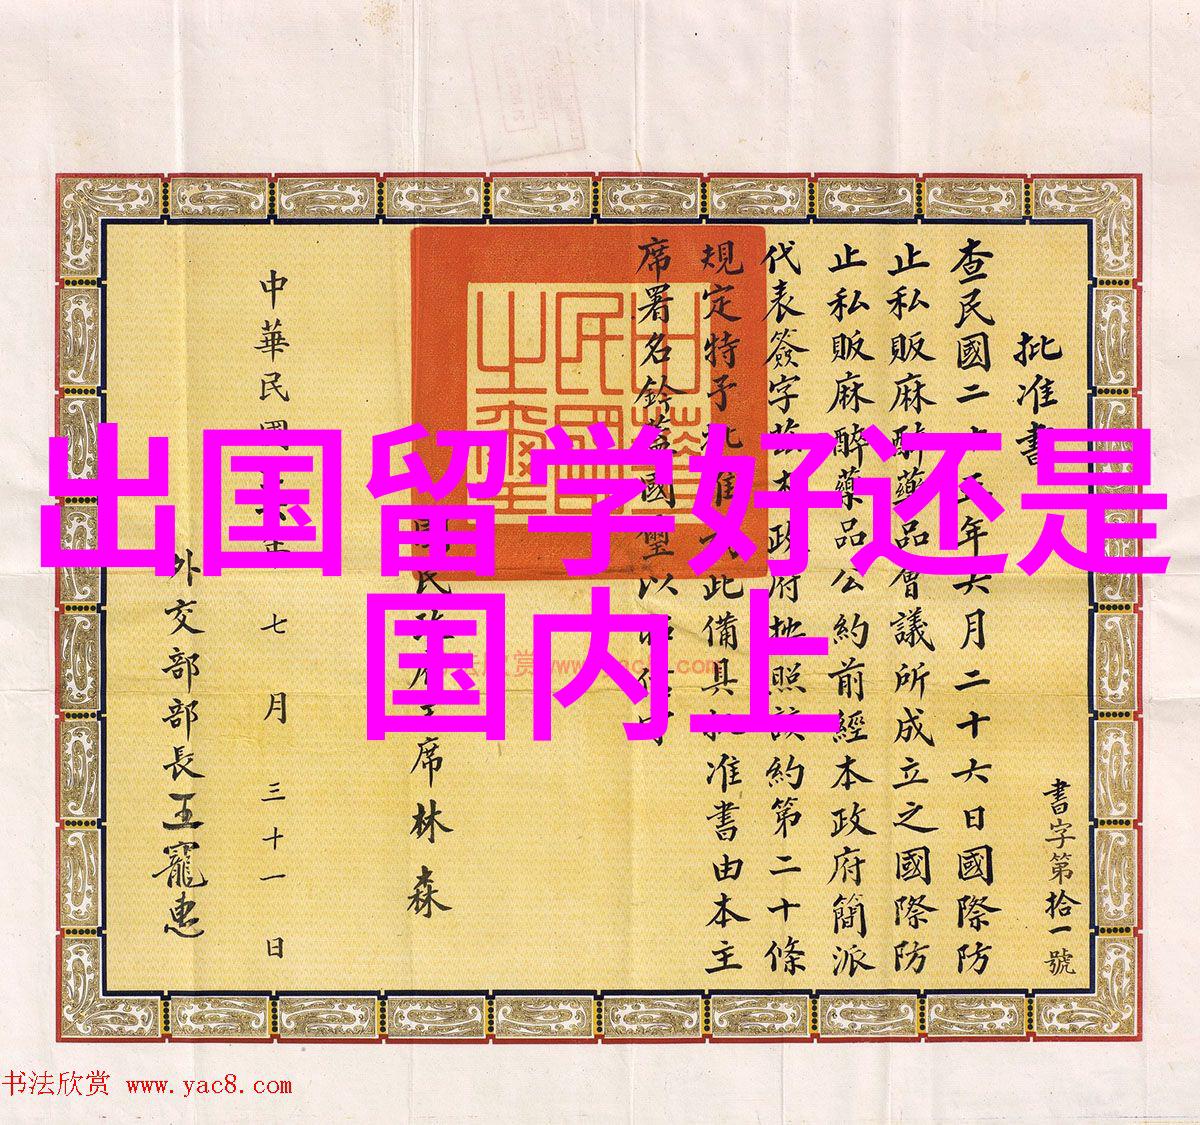 出国留学好还是
国内上
批准書
書字第拾一號
查民國二十五年六月二十六日國際防
止私販麻醉藥品會議所成立之國際防
止私販麻醉藥品公約前經本政府簡派
代表簽字茲本政府照該約第二十條
規定特予批准此備具批准書由本主
席署名鈐蓋國璽以
國民政府主席林森
中華民國年七月三十一日
外交部部長王寵惠
中華民國之璽
书法欣赏 www.yac8.com
书法欣赏 www.yac8.com